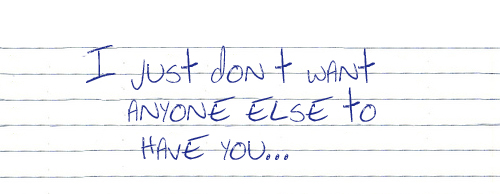 I just don't want
ANYONE ELSE to
HAVE YOU...